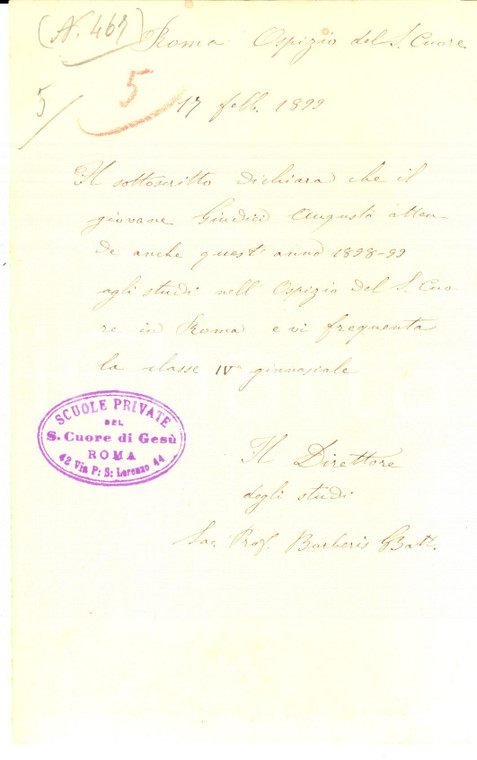 (N. 467)
Roma Ospizio del S. Cuore
5/
5
17 febb. 1899
Il sottoscritto dichiara che il
giovane Giudici Augusto atten-
de anche quest'anno 1898-99
agli studi nell Ospizio del S. Cuo-
re in Roma e vi frequenta
la classe IVª ginnasiale
SCUOLE PRIVATE
DEL
S. Cuore di Gesù
ROMA
42 Via P: S: Lorenzo 44
Il Direttore
degli studi
Sac. Prof. Barberis GBatt.